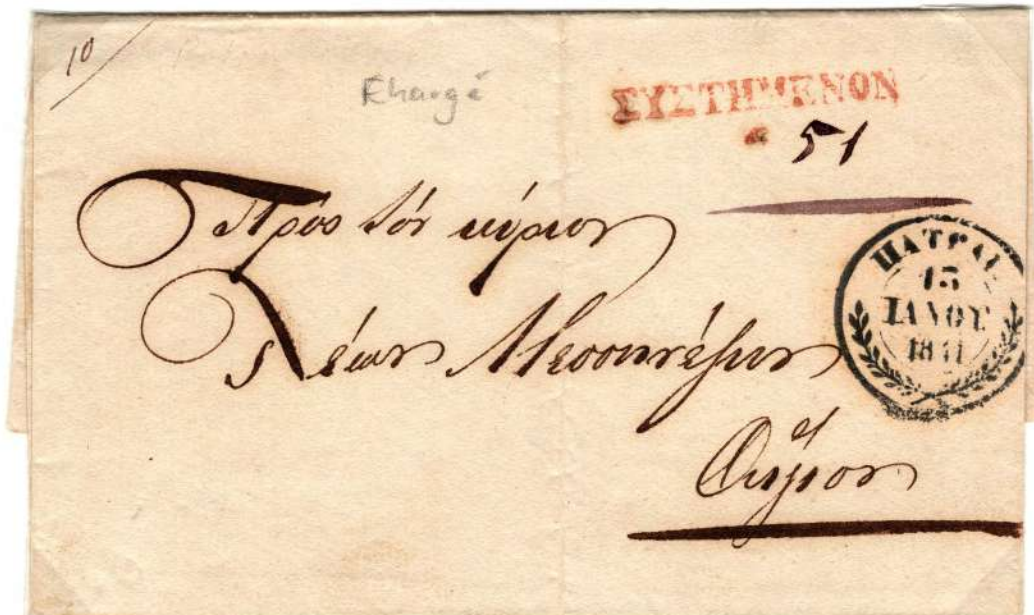 10
Chargé
ΣΥΣΤΗΜΕΝΟΝ
51
Πρὸς τὸν κύριον
Λέων Μεσσηνέζην
Αἴγιον
ΠΑΤΡΑΙ
13
ΙΑΝΟΥ
1841